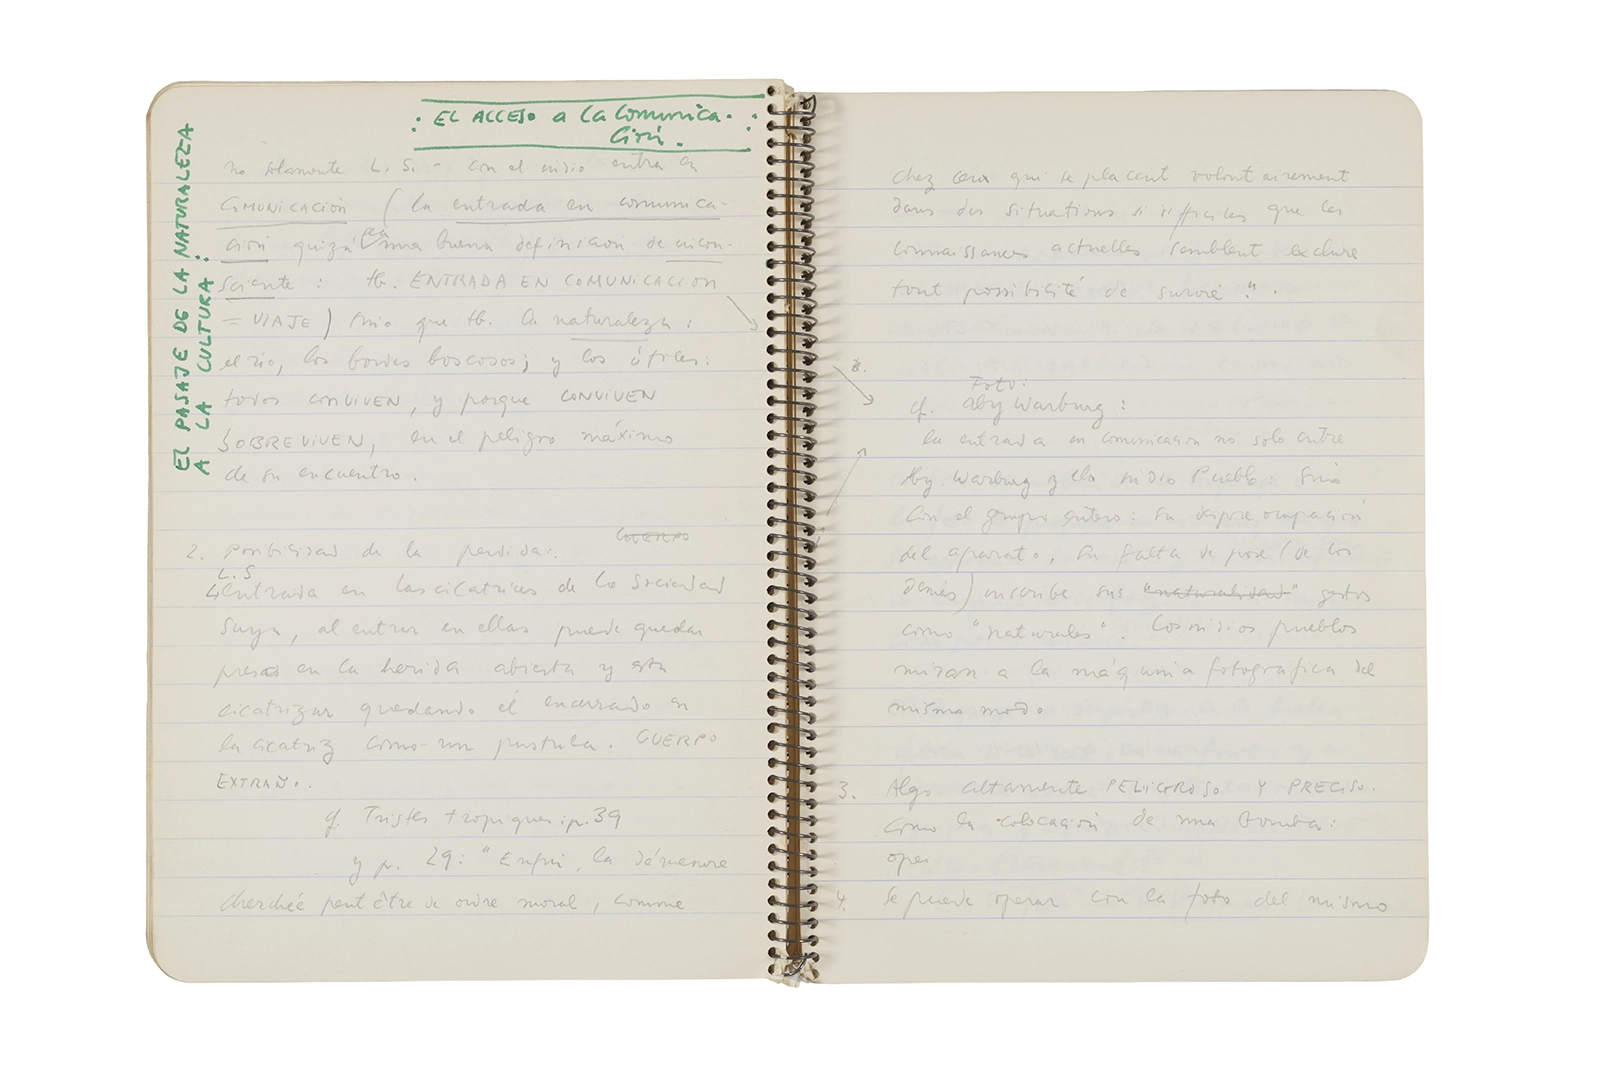 EL ACCESO a la Comunica-
ción.
EL PASAJE DE LA NATURALEZA
A LA CULTURA:
no solamente L. S. - con el indio entra en
COMUNICACIÓN (la entrada en comunica-
ción quizá sea una buena definición de incon-
sciente: tb. ENTRADA EN COMUNICACION
= VIAJE) sino que tb. la naturaleza:
el río, los bordes boscosos; y los útiles:
todos CONVIVEN, y porque CONVIVEN
SOBREVIVEN, en el peligro máximo
de su encuentro.
CUERPO
2. Posibilidad de la perdida:.
L.S
entrada en las cicatrices de la sociedad
suya, al entrar en ellas puede quedar
preso en la herida abierta y esta
cicatrizar quedando él encerrado en
la cicatriz como un pustula. CUERPO
EXTRAÑO.
cf. Tristes tropiques: p. 39
y p. 29: "Enfin, la démesure
cherchée peut être de ordre moral, comme
chez ceux qui se placent volontairement
dans des situations si difficiles que les
connaissances actuelles semblent exclure
tout possibilité de survie".
Foto:
cf. Aby Warburg:
la entrada en comunicacion no solo entre
Aby. Warburg y el indio Pueblo: sino
con el grupo entero: su despreocupación
del aparato, su falta de pose (de los
demás) inscribe sus "naturalidad" gestos
como "naturales". Los indios pueblos
miran a la máquina fotografica del
mismo modo
3. Algo altamente PELIGROSO Y PRECISO.
como la colocación de una bomba:
oper
4. Se puede operar con la foto del mismo